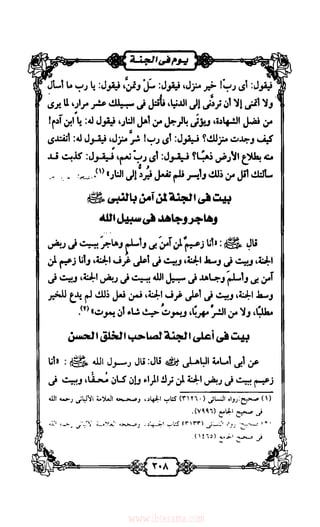 يوم فى الجنة
فيقول: أى رب! خير منزل، فيقول: سَلْ وتمنَّ، فيقول: يا رب ما أسأل
ولا أتمنى إلا أن تردَّنى إلى الدنيا، فأُقتل فى سبيلك عشر مرار، لما يرى
من فضل الشهادة، ويؤتى بالرجل من أهل النار، فيقول له: يا ابن آدم!
كيف وجدت منزلك؟ فيقول: أى رب! شرُّ منزل، فيقول له: أتفتدى
منه بطلاع الأرض ذهبًا؟ فيقول: أى رب نعم، فيقول: كذبت قد
سألتك أقل من ذلك وأيسر فلم تفعل فيُردُّ إلى النار» (١).
بيت فى الجنة لمن آمن بالنبى ﷺ
وهاجر وجاهد فى سبيل الله
قال ﷺ: «أنا زعيمٌ لمن آمنَ بى وأسلم وهاجرَ ببيت فى ربض
الجنة، وبيت فى وسط الجنة، وبيت فى أعلى غُرف الجنة، وأنا زعيم لمن
آمن بى وأسلمَ وجاهد فى سبيل الله ببيت فى ربض الجنة، وبيت فى
وسط الجنة، وبيت فى أعلى غرف الجنة، فمن فعل ذلك لم يدع للخير
مطلبًا، ولا من الشرِّ مهربًا، ويموتُ حيث شاء أن يموت» (٢).
بيت فى أعلى الجنة لصاحب الخلق الحسن
عن أبى أمامة الباهلى رضي الله عنه قال: قال رسول الله ﷺ: «أنا
زعيم ببيت فى ربض الجنة لمن ترك المراء وإن كان مُحقًا، وبيت فى
(١) صحيح: رواه النسائى (٣١٦٠) كتاب الجهاد، وصححه العلامة الألبانى رحمه الله
فى صحيح الجامع (٧٩٩٦).
(٢) صحيح: رواه النسائى (٣١٣٣) كتاب الجهاد، وصححه العلامة الألبانى رحمه الله
فى صحيح الجامع (١٤٦٥).
٣٠٨
www.ibtesama.com